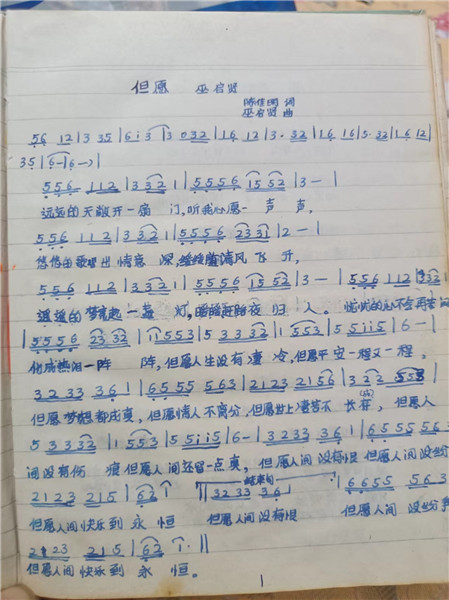 但愿 巫启贤
陈佳明 词
巫启贤 曲
56 12|3 35|6 i 3|3 0 32|16 12|3· 32|16 16|5· 32|16 12|
35|6-|6-|
556 112|332 1|5556 15 52|3-|
远远的天敞开一扇 门,听我心愿一 声 声,
556 112|332 1|5556 2331|2-|
悠悠的歌唱出情意 深, 随清风 飞 升,
556 112|332 1|5556 15 52|3-|556 112|
遥遥的梦亮起一盏 灯, 归 人。 忧忧的心不会再
5556 23 32|11553|5 333 32|1 553|5 5 i i 5|6-|
化成热泪一阵 阵,但愿人生没有凄 冷,但愿平安一程又一程,
3233 361|6555 563|2123 2156|322
但愿梦想都成真,但愿情人不离分,但愿世上 长存,但愿人
5 3332|1 553|5 5 i i 5|6-|3233 361|6555 56
间没有伤 痕 但愿人间还留一点真,但愿人间没有恨 但愿人间没纷
2123 215|62 1 结束句 3233 361 |6655 563
但愿人间快乐到 永 恒 但愿人间没有恨 但愿人间 没纷争
2123 215|62 1·||
但愿人间快乐到 永 恒。
1